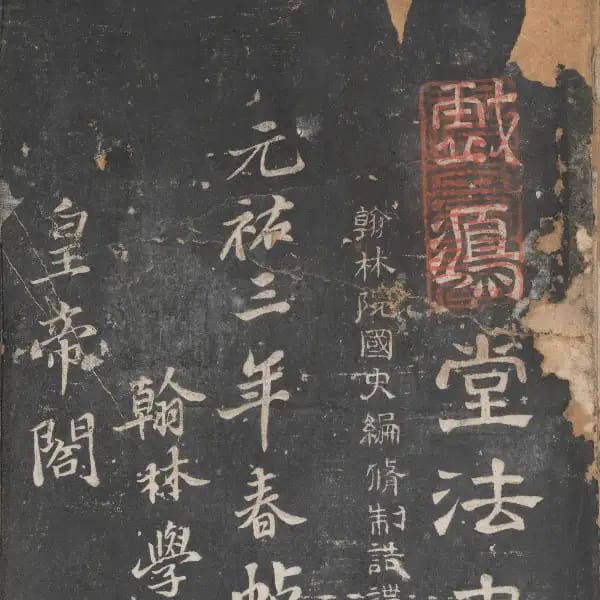 戲鴻堂法
翰林院國史編脩制誥講
元祐三年春帖
翰林學
皇帝閣